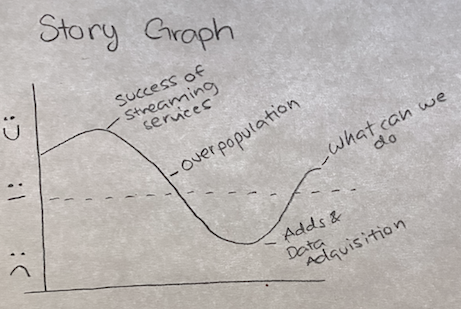 Story Graph
Success of
Streaming
services
overpopulation
What can we
do
Adds &
Data
Adquisition